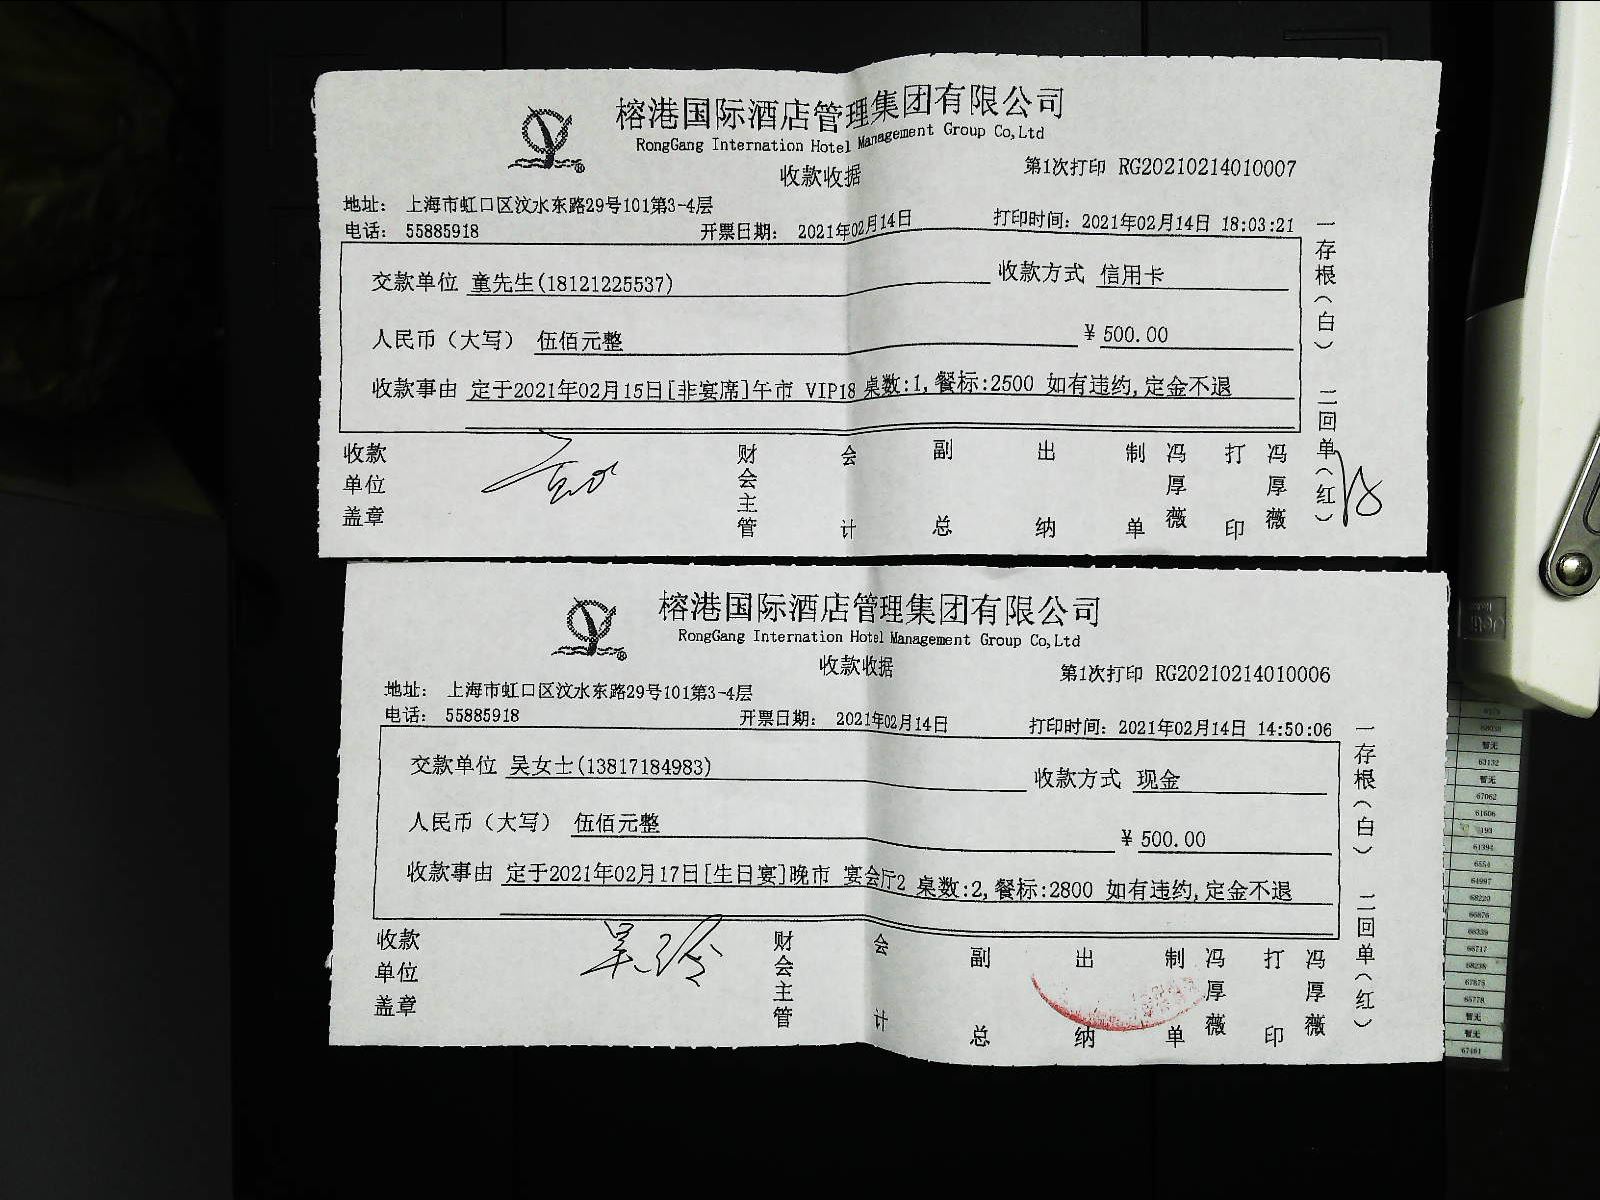 榕港国际酒店管理集团有限公司
RongGang Internation Hotel Management Group Co,Ltd
收款收据
第1次打印 RG20210214010007
地址： 上海市虹口区汶水东路29号101第3-4层
电话： 55885918 开票日期： 2021年02月14日 打印时间：2021年02月14日 18:03:21
交款单位 童先生(18121225537) 收款方式 信用卡
人民币（大写） 伍佰元整 ¥ 500.00
收款事由 定于2021年02月15日[非宴席]午市 VIP18 桌数:1,餐标:2500 如有违约,定金不退
收款单位盖章 财会主管 会计 副总 出纳 制单 冯厚薇 打印 冯厚薇
一存根（白） 二回单（红）
榕港国际酒店管理集团有限公司
RongGang Internation Hotel Management Group Co,Ltd
收款收据
第1次打印 RG20210214010006
地址： 上海市虹口区汶水东路29号101第3-4层
电话： 55885918 开票日期： 2021年02月14日 打印时间：2021年02月14日 14:50:06
交款单位 吴女士(13817184983) 收款方式 现金
人民币（大写） 伍佰元整 ¥ 500.00
收款事由 定于2021年02月17日[生日宴]晚市 宴会厅2 桌数:2,餐标:2800 如有违约,定金不退
收款单位盖章 财会主管 会计 副总 出纳 制单 冯厚薇 打印 冯厚薇
一存根（白） 二回单（红）
暂无
63132
暂无
67062
61606
61394
64997
68220
66876
66339
66717
68238
67875
65778
暂无
暂无
67461